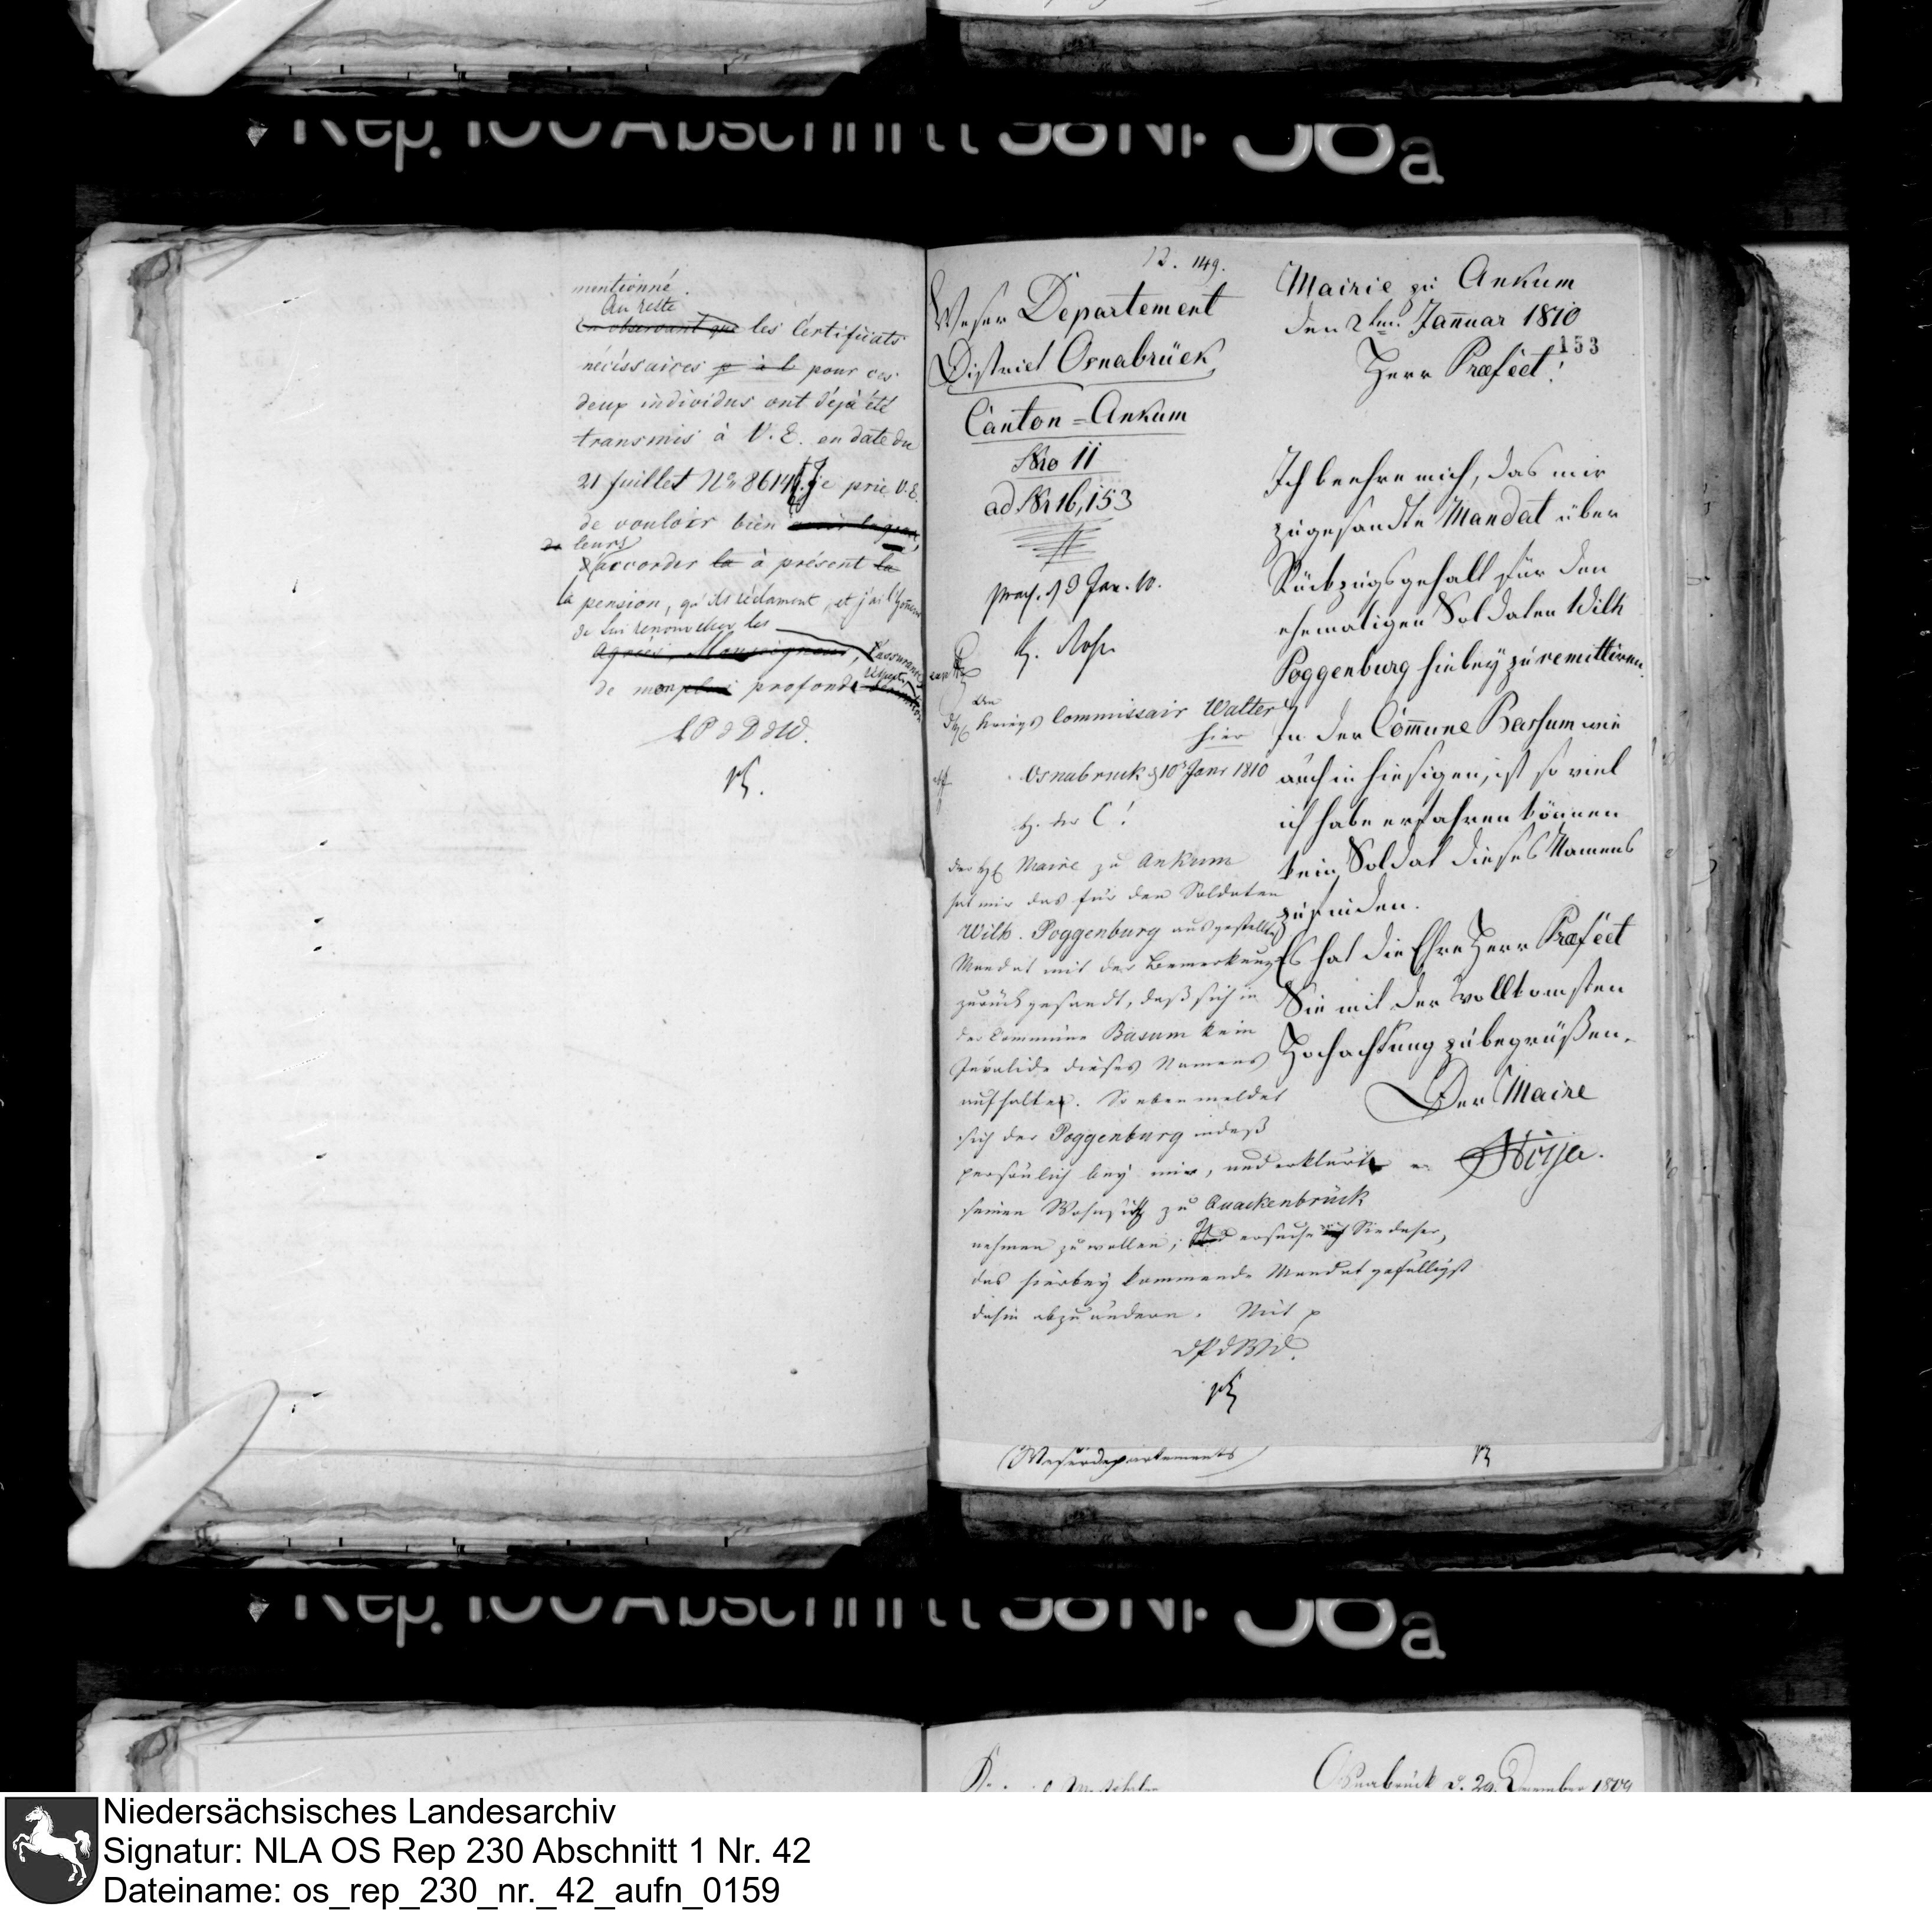 Rep. 100 Abschnitt 38 Nr. 36a
mentionné.
Au reste
En observant que les Certificats
nécéssaires p à l pour ces
deux individus ont déjà été
transmis à V. E. en date du
21 Juillet No 8614. Je prie V. E.
de vouloir bien
de leurs
d'accorder la à présent la
la pension, qu'ils réclament, et j'ai l'honneur
de lui renouveller les
Agréés, Monseigneur, l'assurance
de mon plus profond respect
l P d D d W.
B. 149.
Weser Departement
District Osnabrück
Canton = Ankum
Nro 11
ad Nr 16,153
praes. d 3 Jan. 10.
An
d H. Kriegs Commissair Walter
hier
Osnabruck d 10t Janr 1810
H. der C!
der H. Maire zu Ankum
hat mir das für den Soldaten
Wilh. Poggenburg ausgestellte
Mandat mit der Bemerkung
zurückgesandt, daß sich in
der Commüne Basum kein
Invalide dieses Namens
aufhalte. So eben meldet
sich der Poggenburg indeß
persönlich bey mir, und erklärt er
seinen Wohnsitz zu Quackenbrück
nehmen zu wollen; ersuche ich Sie daher,
das hierbey kommende Mandat gefälligst
dahin abzuändern. Mit p
d P d W D.
Mairie zu Ankum
den 2ten Januar 1810
153
Herr Præfect!
Ich beehre mich, das mir
zugesandte Mandat über
Rückzugsgehalt für den
ehemaligen Soldaten Wilh
Poggenburg hiebey zu remittiren.
In der Commune Bersum wie
auch in hiesigen, ist so viel
ich habe erfahren können
kein Soldat dieses Namens
zu finden.
Es hat die Ehre Herr Præfect
Sie mit der vollkomsten
Hochachtung zu begrüßen.
Der Maire
Weserdepartements
Rep. 100 Abschnitt 38 Nr. 36a
Osnabrück d. 29. December 1809
Niedersächsisches Landesarchiv
Signatur: NLA OS Rep 230 Abschnitt 1 Nr. 42
Dateiname: os_rep_230_nr._42_aufn_0159